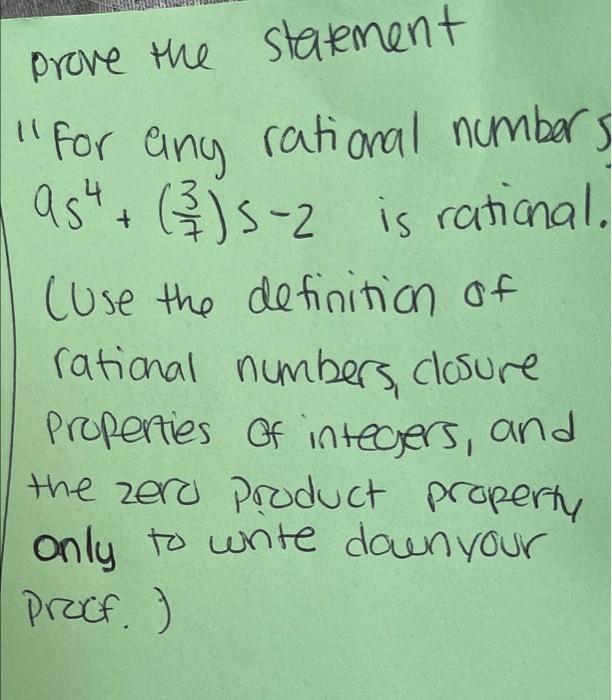 prove the statement
"For any rational number s
9s⁴ + (3/7)s - 2 is rational.
(Use the definition of
rational numbers, closure
properties of integers, and
the zero product property
only to write down your
proof.)